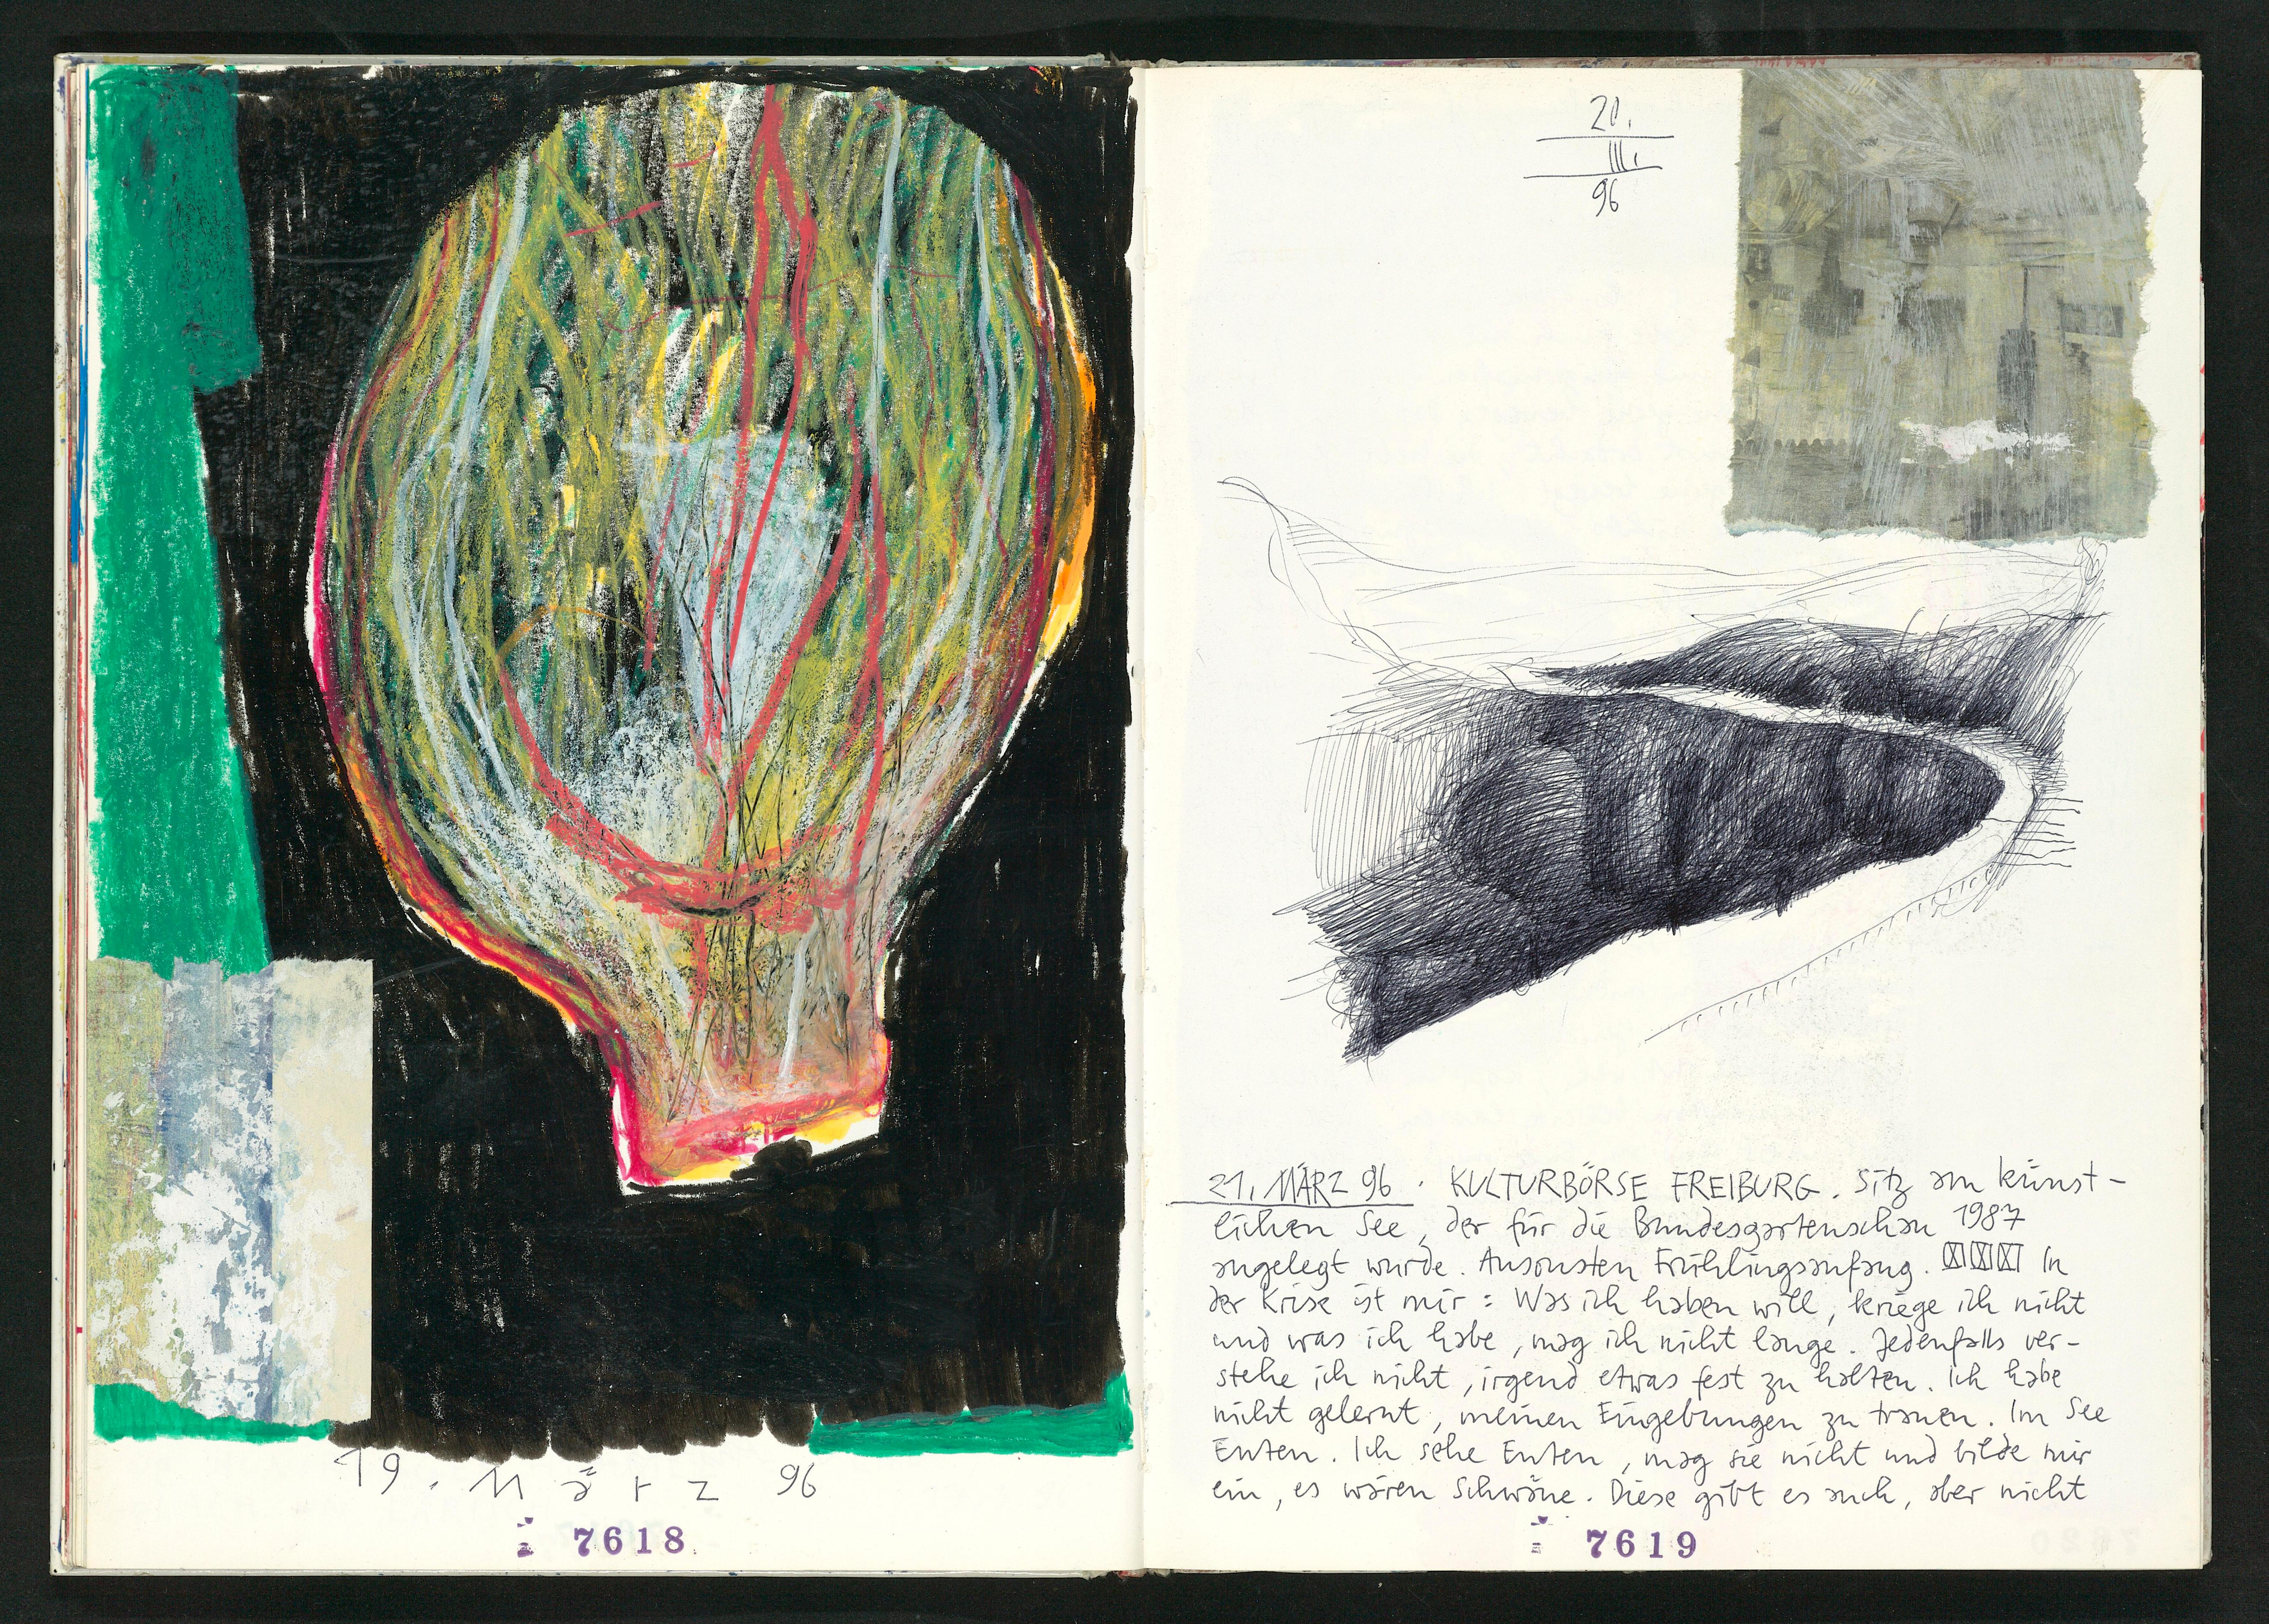 19. März 96
7618
20.
III.
96
21. MÄRZ 96 . KULTURBÖRSE FREIBURG. Sitz am künst-
lichen See, der für die Bundesgartenschau 1987
angelegt wurde. Ansonsten Frühlingsanfang. In
der Krise ist mir: Was ich haben will, kriege ich nicht
und was ich habe, mag ich nicht lange. Jedenfalls ver-
stehe ich nicht, irgend etwas fest zu halten. Ich habe
nicht gelernt, meinen Eingebungen zu trauen. Im See
Enten. Ich sehe Enten, mag sie nicht und bilde mir
ein, es wären Schwäne. Diese gibt es auch, aber nicht
7619